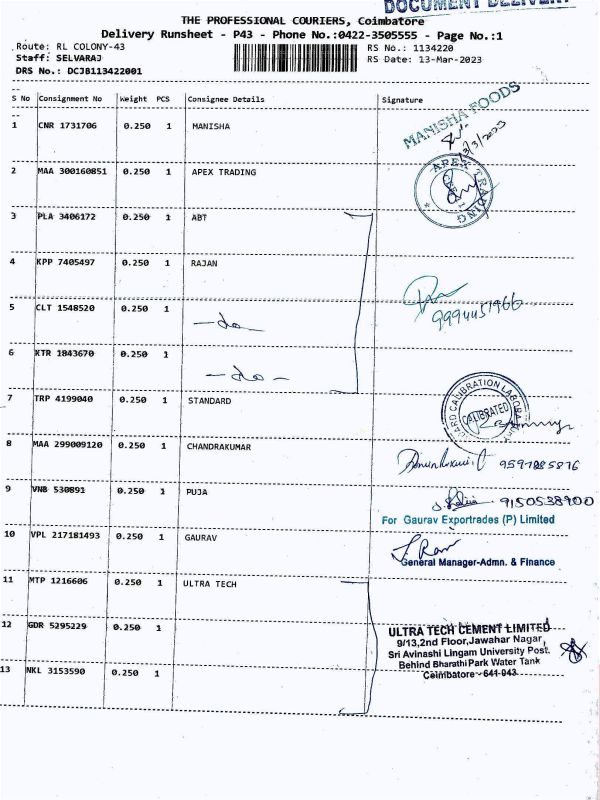 DOCUMENT DELIVERY
THE PROFESSIONAL COURIERS, Coimbatore
Delivery Runsheet - P43 - Phone No.:0422-3505555 - Page No.:1
Route: RL COLONY-43
RS No.: 1134220
Staff: SELVARAJ
RS Date: 13-Mar-2023
DRS No.: DCJB113422001
S No Consignment No Weight PCS Consignee Details Signature
1 CNR 1731706 0.250 1 MANISHA
MANISHA FOODS
13/3/2023
2 MAA 300160851 0.250 1 APEX TRADING
APEX TRADING
3 PLA 3406172 0.250 1 ABT
4 KPP 7405497 0.250 1 RAJAN
9994451966
5 CLT 1548520 0.250 1 -do-
6 KTR 1843670 0.250 1 -do-
7 TRP 4199040 0.250 1 STANDARD
CALIBRATION LABORA
CALIBRATED
8 MAA 299009120 0.250 1 CHANDRAKUMAR
9 VNB 530891 0.250 1 PUJA
9150538900
For Gaurav Exportrades (P) Limited
10 VPL 217181493 0.250 1 GAURAV
General Manager-Admn. & Finance
11 MTP 1216606 0.250 1 ULTRA TECH
12 GDR 5295229 0.250 1
ULTRA TECH CEMENT LIMITED
9/13,2nd Floor,Jawahar Nagar,
Sri Avinashi Lingam University Post.
Behind Bharathi Park Water Tank
Coimbatore - 641 043
13 NKL 3153590 0.250 1